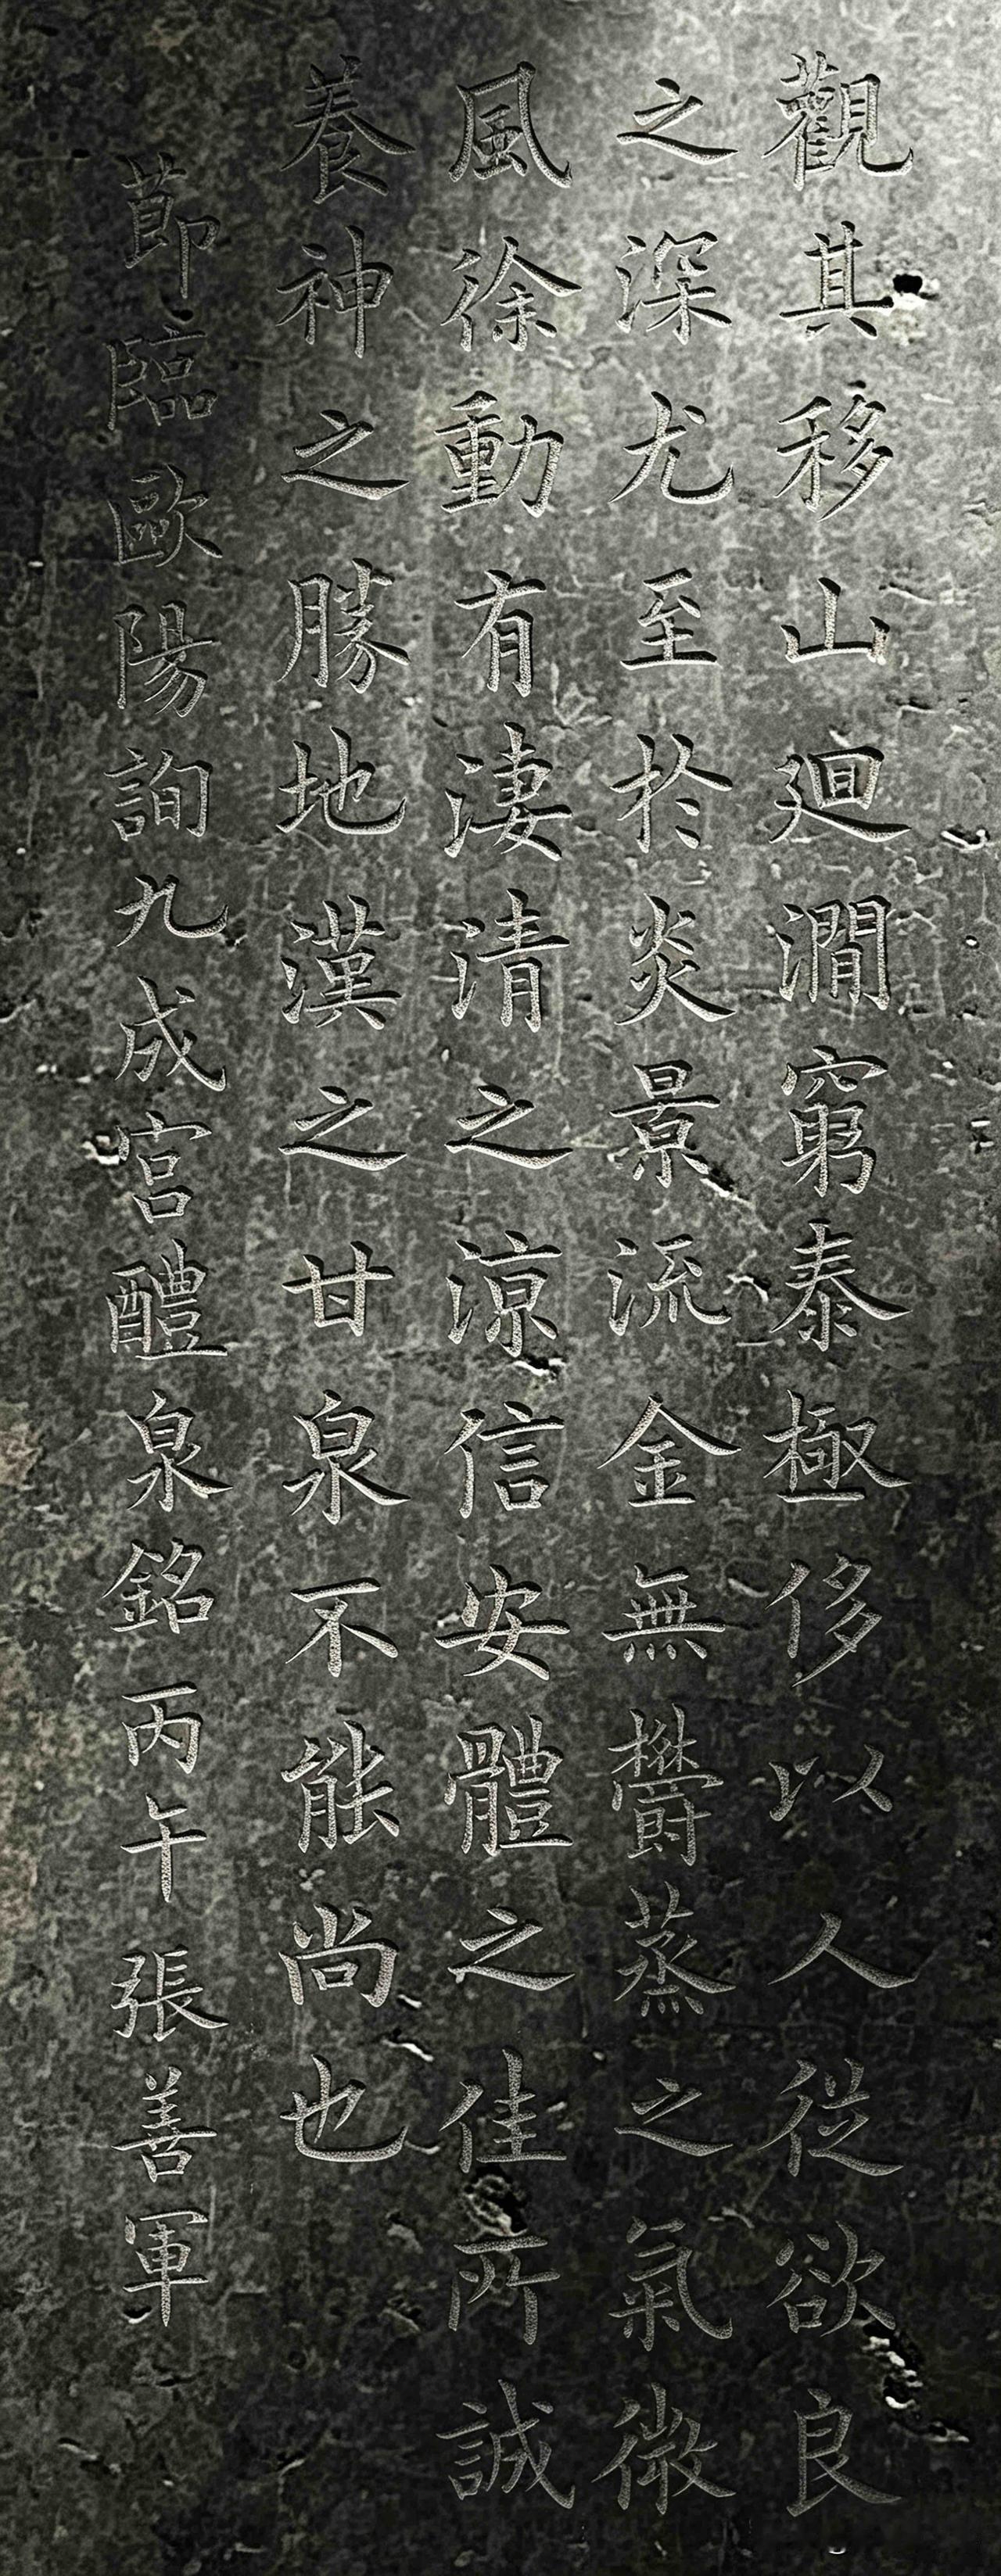 觀其移山廻澗窮泰極侈以人從欲良
之深尤至於炎景流金無欝蒸之氣微
風徐動有凄清之涼信安體之佳所誠
養神之勝地漢之甘泉不能尚也
節臨歐陽詢九成宮醴泉銘丙午張善軍